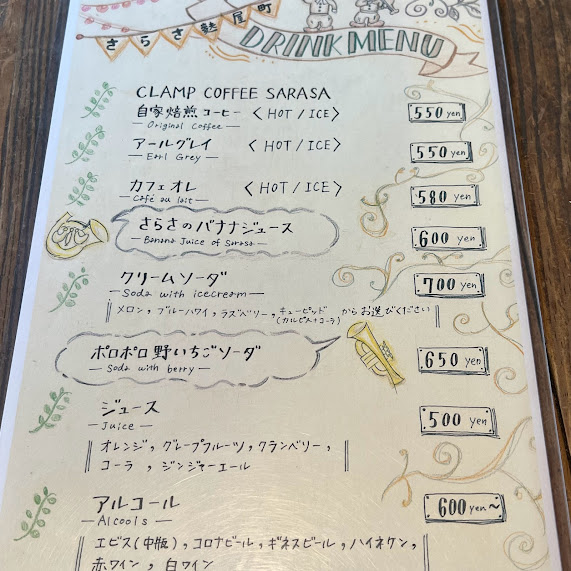 さらさ麩屋町
DRINK MENU
CLAMP COFFEE SARASA
自家焙煎コーヒー 〈HOT / ICE〉 550 yen
— Original Coffee —
アールグレイ 〈HOT / ICE〉 550 yen
— Earl Grey —
カフェオレ 〈HOT / ICE〉 580 yen
— Café au lait —
さらさのバナナジュース 600 yen
— Banana Juice of Sarasa —
クリームソーダ 700 yen
— Soda with icecream —
メロン, ブルーハワイ, ラズベリー, キューピッド(カルピス+コーラ) からお選びください
ポロポロ野いちごソーダ 650 yen
— Soda with berry —
ジュース 500 yen
— Juice —
オレンジ, グレープフルーツ, クランベリー,
コーラ, ジンジャーエール
アルコール 600 yen~
— Alcools —
エビス(中瓶), コロナビール, ギネスビール, ハイネケン,
赤ワイン, 白ワイン